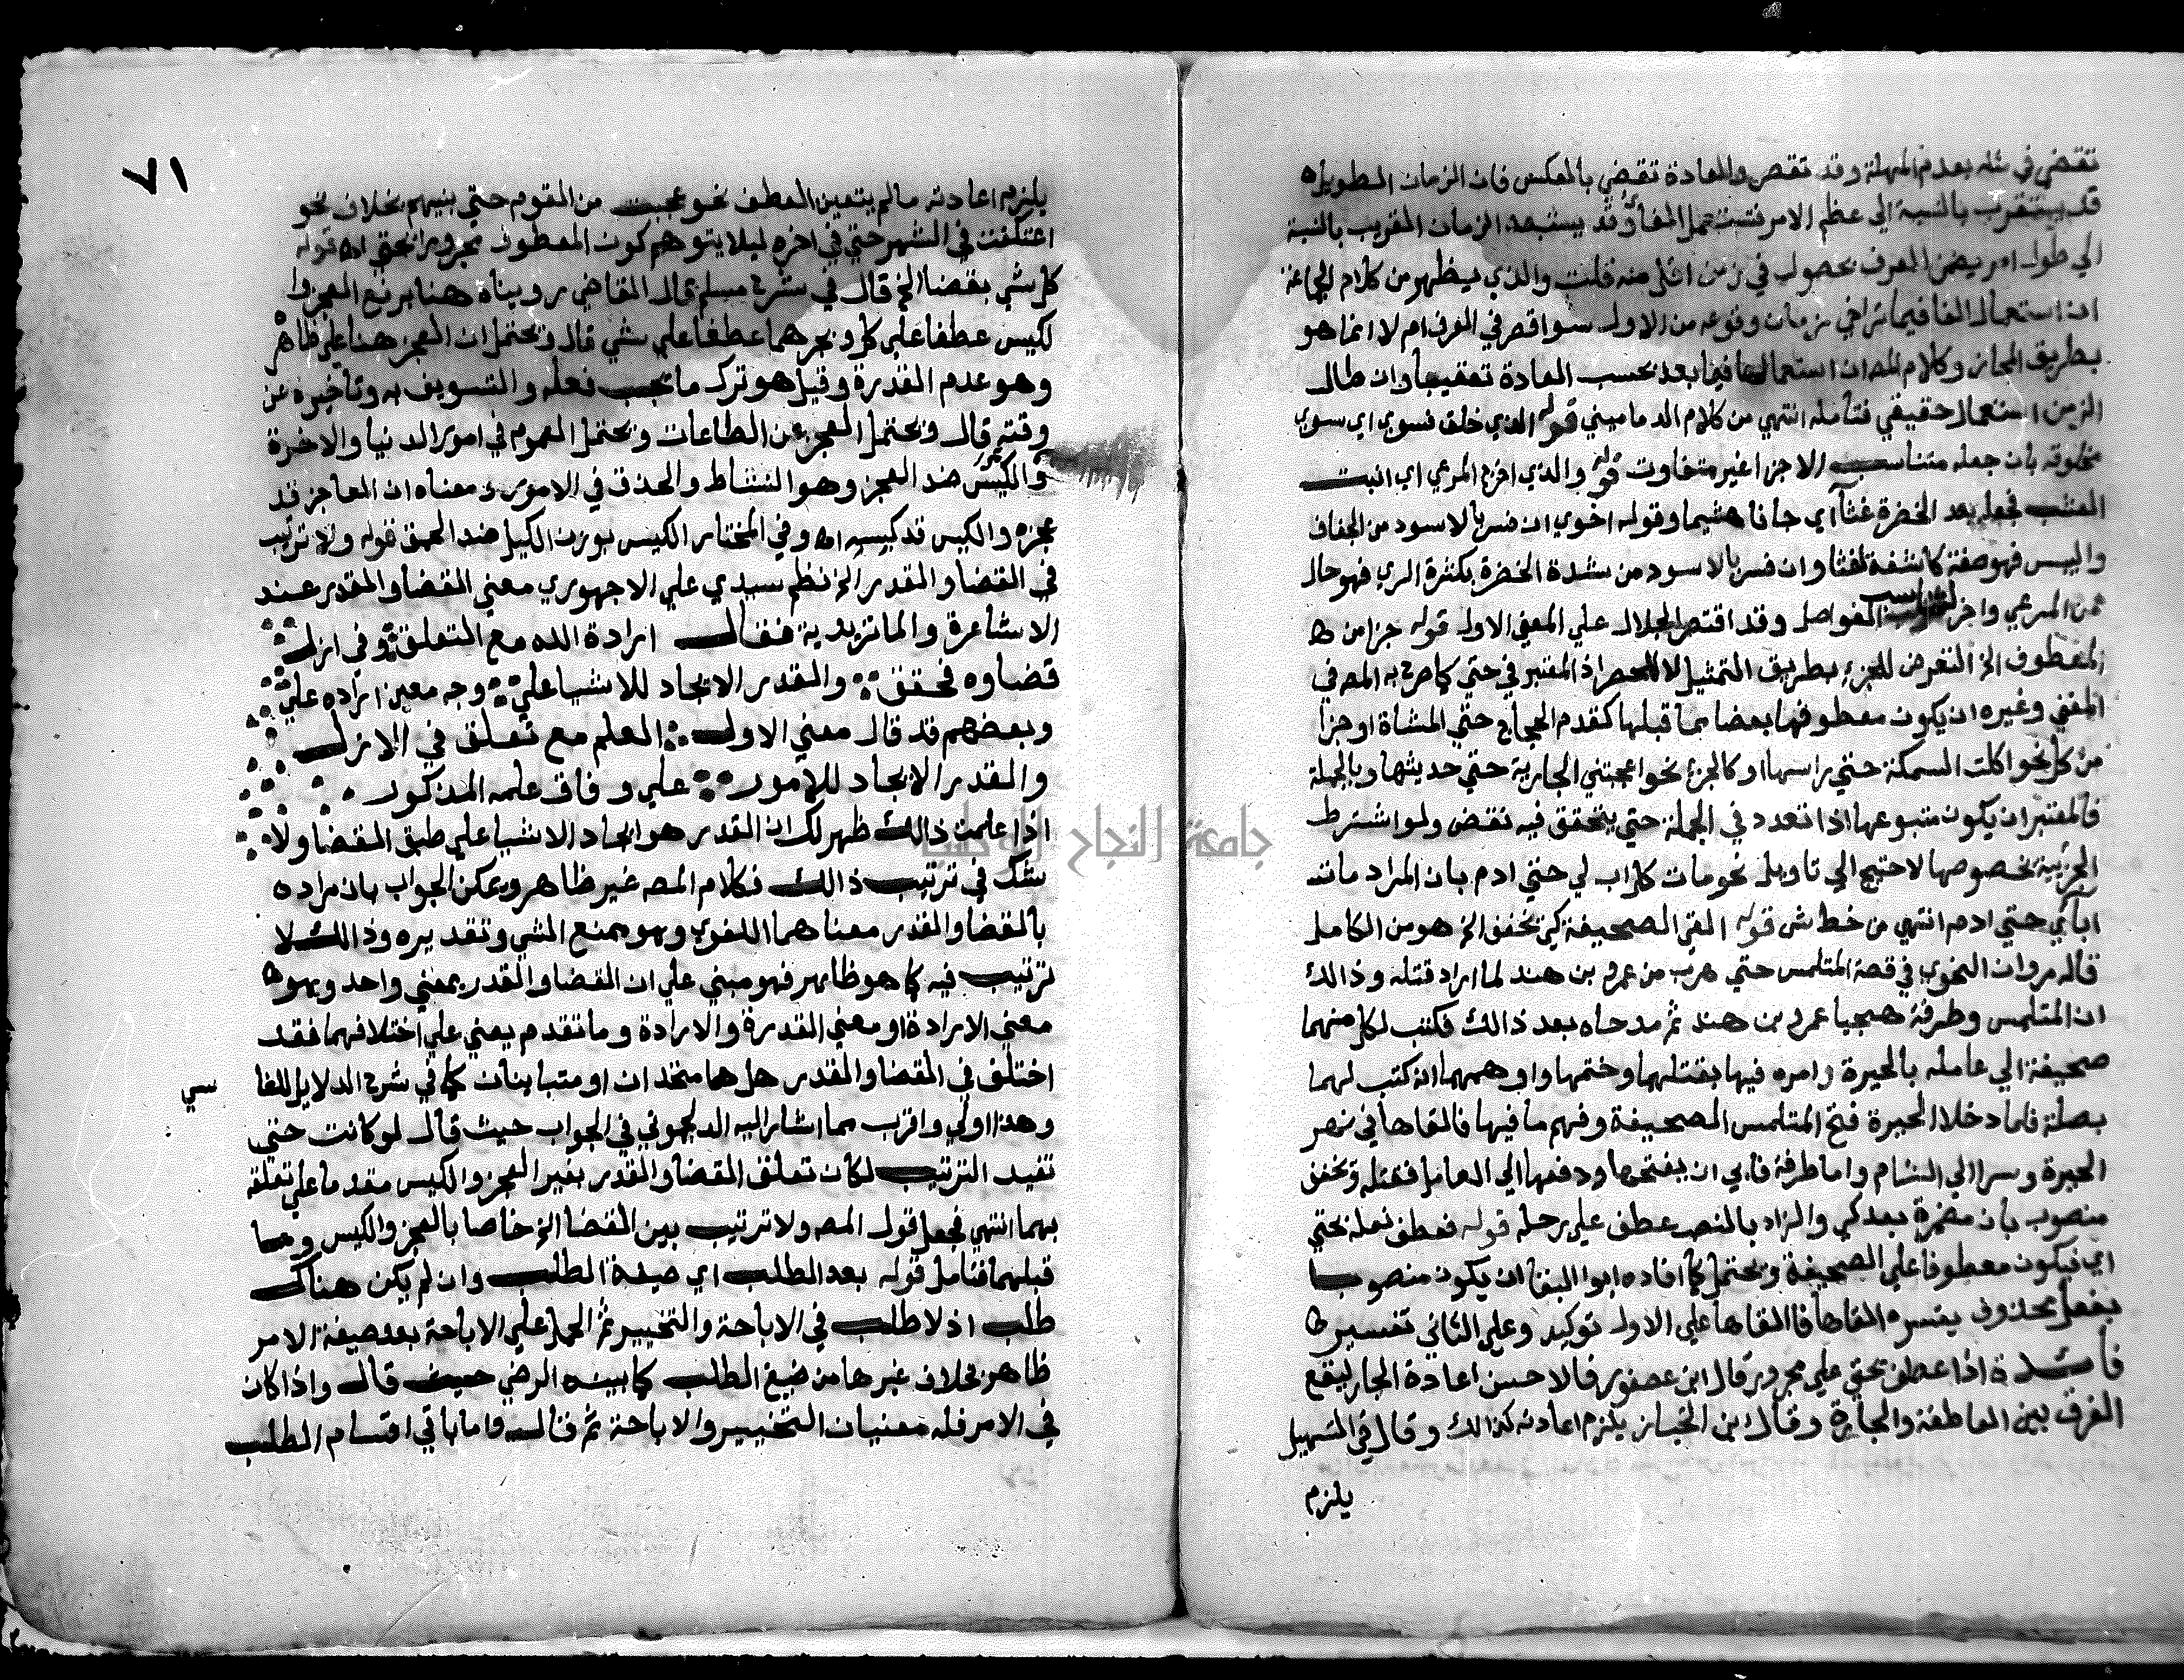 تقضي في مثله بعدم المهلة وقد تقصر والعادة تقضي بالعكس فان الزمان الطويل
قد يستقرب بالنسبة الي عظم الامر فتستعمل الفا وقد يستبعد الزمان القريب بالنسبة
الي طول امر يقضي العرف بحصوله في زمن اقل منه قلت والذي يظهر من كلام الجماعة
ان استعمال الفا فيما تراخي زمان وقوعه من الاول سوا قصر في العرف ام لا انما هو
بطريق المجاز وكلام المصه ان استعمالها فيما بعد بحسب العادة تعقيبا وان طال
الزمن استعمال حقيقي فتأمله انتهي من كلام الدماميني قوله الذي خلق فسوي اي سوي
مخلوقه بان جعله متناسب الاجزا غير متفاوت قوله والذي اخرج المرعي اي انبت
العشب فجعله بعد الخضرة غثاآ اي جافا هشيما وقوله احوي ان فسر بالاسود من الجفاف
واليبس فهو صفة كاشفة لغثا وان فسر بالاسود من شدة الخضرة بكثرة الري فهو حال
من المرعي واخر لتناسب الفواصل وقد اقتصر الجلال علي المعني الاول قوله جزا من
المعطوف الخ التعرض للجزء بطريق التمثيل لا الحصر اذ المعتبر في حتي كما صرح به المصه في
المغني وغيره ان يكون معطوفها بعضا مما قبلها كقدم الحجاج حتي المشاة او جزا
من كل نحو اكلت السمكة حتي راسها او كالجزء نحو اعجبتني الجارية حتي حديثها وبالجملة
فالمعتبر ان يكون متبوعها اذا تعدد في الجملة حتي يتحقق فيه تقض ولو اشترط
الجزئية بخصوصها لاحتيج الي تاويل نحو مات كل اب لي حتي ادم بان المراد مات
اباءي حتي ادم انتهي من خط ش قوله القي الصحيفة كي تخفف الخ هو من الكامل
قاله مروان النحوي في قصة المتلمس حتي هرب من عمرو بن هند لما اراد قتله وذالك
ان المتلمس وطرفة هجيا عمرو بن هند ثم مدحاه بعد ذالك فكتب لكل منهما
صحيفة الي عامله بالحيرة وامره فيها بقتلهما وختمها واوهمهما انه كتب لهما
بصلة فلما دخلا الحيرة فتح المتلمس الصحيفة وفهم ما فيها فالقاها في نهر
الحيرة وسرا الي الشام واما طرفة فابي ان يفتحها ودفعها الي العامل فقتله وتخفف
منصوب بان مضمرة بعد كي والزاد بالنصب عطف علي رحله قوله فعطف نعله بحتي
اي فيكون معطوفا علي الصحيفة ويحتمل كما افاده ابوا البقا ان يكون منصوبا
بفعل محذوف يفسره القاها فالقاها علي الاول توكيد وعلي الثاني تفسير
فأئدة اذا عطف بحتي علي مجرور قال ابن عصفور فالاحسن اعادة الجار ليقع
الفرق بين العاطفة والجارة وقال ابن الخباز يلزم اعادته كذالك وقال في التسهيل
يلزم
٧١
يلزم اعادته مالم يتعين العطف نحو عجبت من القوم حتي بنيهم بخلاف نحو
اعتكفت في الشهر حتي في اخره ليلا يتوهم كون المعطوف مجرورا بحتي اه قوله
كل شي بقضا الخ قال في شرح مسلم قال القاضي رويناه هنا برفع العجز وا
لكيس عطفا علي كل وبجرهما عطفا علي شي قال ويحتمل ان العجز هنا علي ظاهره
وهو عدم القدرة وقيل هو ترك ما تجب فعله والتسويف به وتاخيره عن
وقته قال ويحتمل العجز عن الطاعات ويحتمل العموم في امور الدنيا والاخرة
والكيس ضد العجز وهو النشاط والحذق في الامور ومعناه ان العاجز قد
عجزه والكيس قد كيسه اه وفي المختار الكيس بوزن الكيل ضد الحمق قوله ولا ترتيب
في القضا والقدر الخ نظم سيدي علي الاجهوري معني القضا والقدر عند
الاشاعرة والماتريدية فقال ارادة الله مع التعلق في ازل
قضاوه فحقق والقدر الايجاد للاشيا علي وجه معين اراده علي
وبعضهم قد قال معني الاول العلم مع تعلق في الازل
والقدر الايجاد للامور علي وفاق علمه المذكور
اذا علمت ذالك ظهر لك ان القدر هو ايجاد الاشيا علي طبق القضا ولا
شك في ترتيب ذالك فكلام المصه غير ظاهر ويمكن الجواب بان مراده
بالقضا والقدر معناهما اللغوي وهو صنع الشي وتقديره وذالك لا
ترتيب فيه كما هو ظاهر فهو مبني علي ان القضا والقدر بمعني واحد وهو
معني الارادة او معني القدرة والارادة وما تقدم يعني علي اختلافهما فقد
اختلف في القضا والقدر هل هما متحدان او متباينان كما في شرح الدلايل للفا
سي
وهذا اولي واقرب مما اشار اليه الدلجوني في الجواب حيث قال لو كانت حتي
تفيد الترتيب لكان تعلق القضا والقدر بغير العجز والكيس مقدما علي تعلقه
بهما انتهي فجعل قول المصه ولا ترتيب بين القضا الخ خاصا بالعجز والكيس وما
قبلهما فتامل قوله بعد الطلب اي صيغة الطلب وان لم يكن هناك
طلب اذ لا طلب في الاباحة والتخيير ثم الحمل علي الاباحة بعد صيغة الامر
ظاهر بخلاف غيرها من صيغ الطلب كما بينه الرضي حيث قال واذا كان
في الامر فله معنيان التخيير والاباحة ثم قال واما باقي اقسام الطلب
جامعة النجاح الوطنية